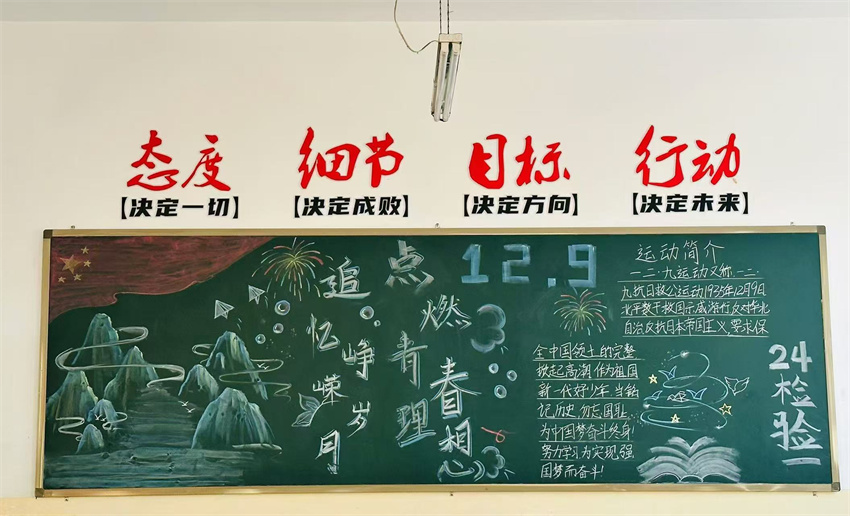 态度
【决定一切】
细节
【决定成败】
目标
【决定方向】
行动
【决定未来】
追忆峥嵘岁月
点燃
青春
理想
12.9
运动简介
一二·九运动又称一二
九抗日救亡运动1935年12月9日
北平数千救国示威游行反对华北
自治反抗日本帝国主义,要求保
全中国领土的完整
掀起高潮作为祖国
新一代好少年当铭
记历史勿忘国耻
为中国梦奋斗终身!
努力学习为实现强
国梦而奋斗!
24检验一